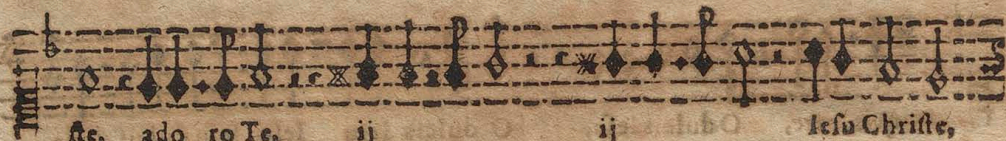 ſte, ado ro Te, ij ij Ieſu Chriſte,